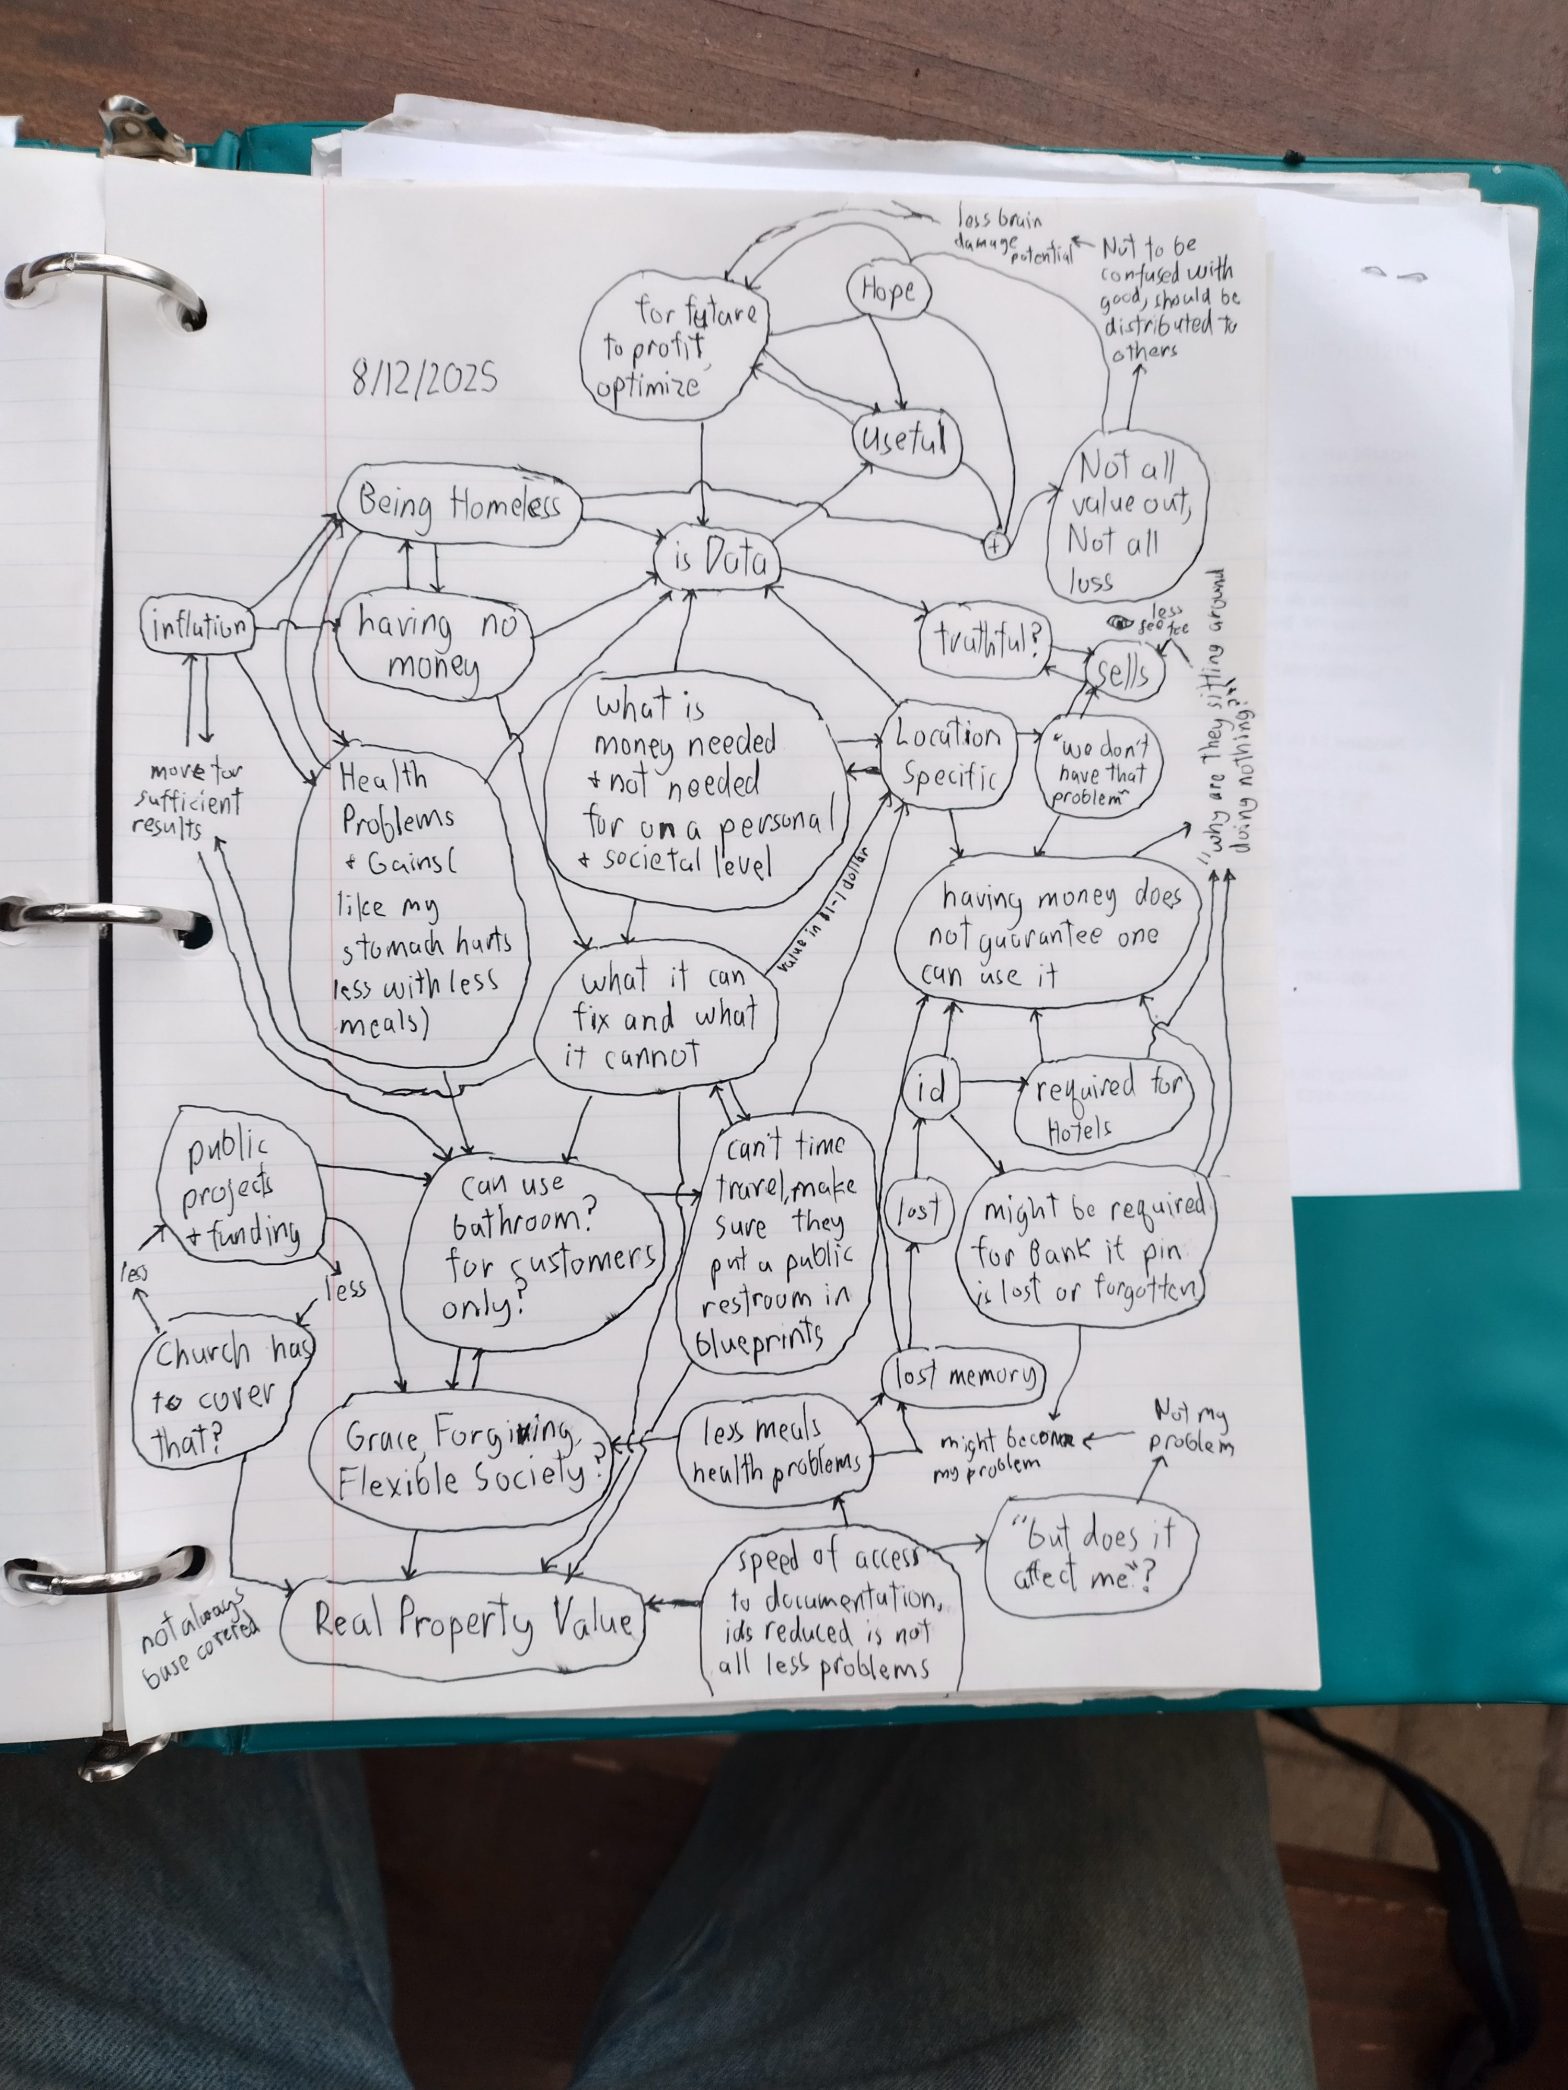 less brain
damage
potential
Not to be
confused with
good, should be
distributed to
others
Hope
for future
to profit,
optimize
8/12/2025
useful
Not all
value out,
Not all
loss
Being Homeless
is Data
+
inflation
having no
money
truthful?
less
sells
"why are they sitting around
doing nothing?"
what is
money needed
+ not needed
for on a personal
+ societal level
Location
Specific
"we don't
have that
problem"
move for
sufficient
results
Health
Problems
+ Gains(
like my
stomach hurts
less with less
meals)
value in $1-1 dollar
having money does
not guarantee one
can use it
what it can
fix and what
it cannot
id
required for
Hotels
public
projects
+ funding
can use
bathroom?
for customers
only?
can't time
travel, make
sure they
put a public
restroom in
blueprints
lost
might be required
for Bank if pin
is lost or forgotten
less
less
Church has
to cover
that?
lost memory
Grace, Forgiving,
Flexible Society?
less meals
health problems
might become
my problem
Not my
problem
speed of access
to documentation,
ids reduced is not
all less problems
"but does it
affect me"?
not always
base covered
Real Property Value